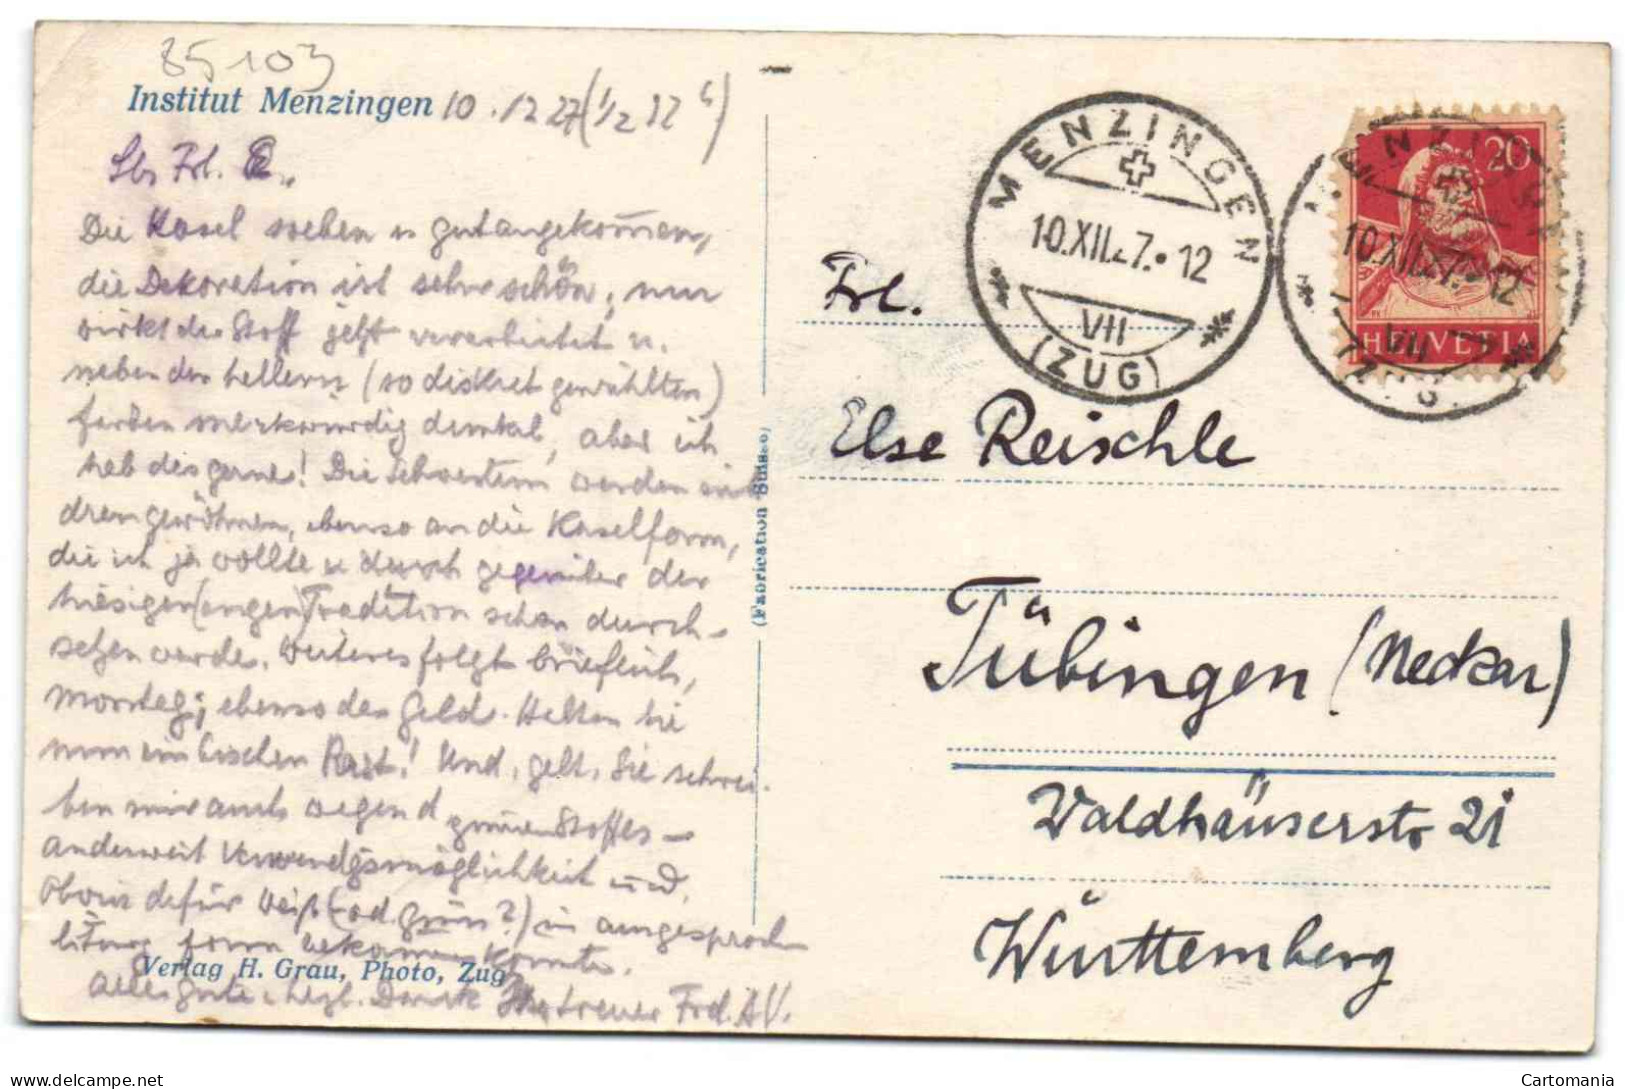 85103
Institut Menzingen 10.12 27 (1/2 12 h)
Lb. Frl. E.,
Die Kasel soeben u gut angekom̄en,
die Dekoration ist sehr schön; nur
wirkt der Stoff jetzt verarbeitet u.
neben den hellern (so diskret gewählten)
farben merkwürdig dunkel, aber ich
hab das gerne! Die Schwestern werden sich
dran gewöhnen, ebenso an die Kaselform,
die ich ja wollte u durch gegenüber der
hiesigen (engen) Tradition schon durch-
setzen werde. Weiteres folgt brieflich,
Montag; ebenso das Geld. Halten Sie
nun ein bischen Rast! Und, gelt, Sie schrei-
ben mir amts wegen d grünen Stoffes -
anderweit Verwendgsmöglichkeit und,
ob wir dafür Weiß (od. grün?) in ausgesproch
liturg form bekommen könnte.
Verlag H. Grau, Photo, Zug
Alles gute u herzl. Dank Ihr treuer Frd. AV.
(Fabrication Suisse)
MENZINGEN
10.XII.27.•12
VII
(ZUG)
MENZINGEN
10.XII.27.•12
VII
(ZUG)
20
HELVETIA
Frl.
Else Reischle
Tübingen (Neckar)
Waldhäuserstr 21
Württemberg
Cartomania